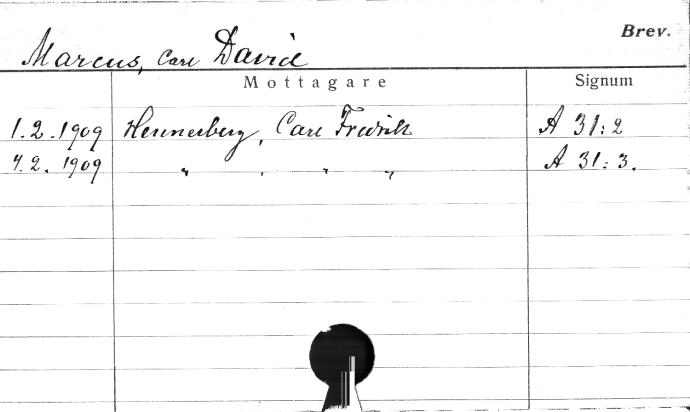 Brev.
Marcus, Carl David
Mottagare Signum
1.2.1909 Hennerberg, Carl Fredrik A 31:2
4.2.1909 " , " " A 31:3.